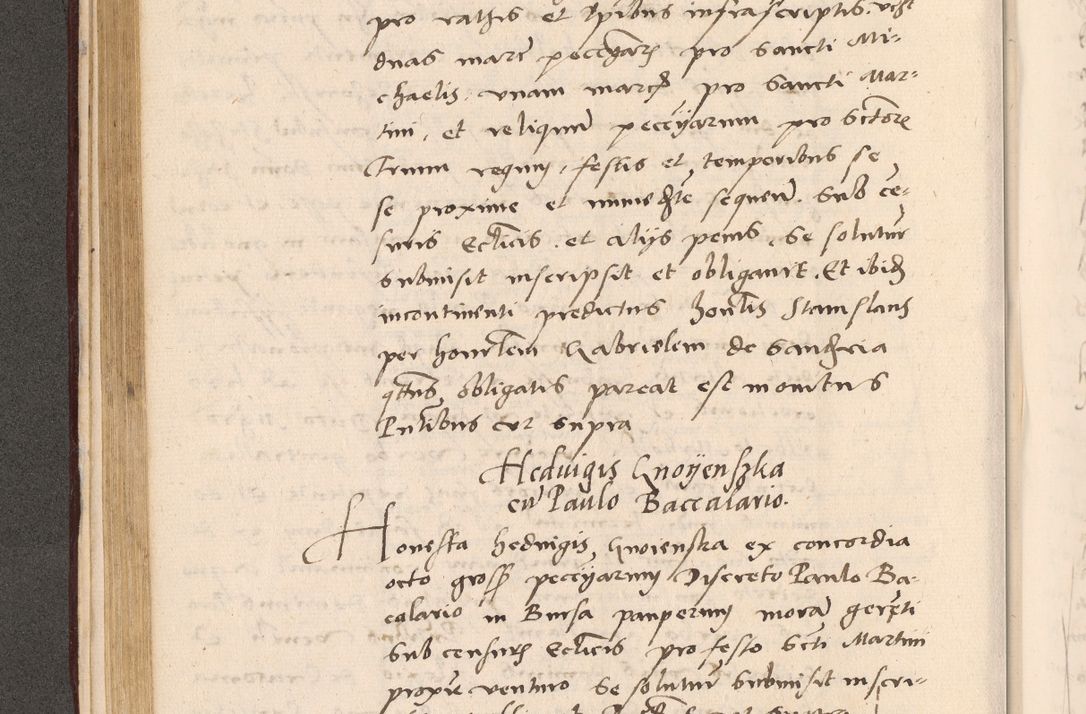 pro rathis et Ipibus infrascriptis. vcht
duas marc peccyarz pro Sancti Mi-
chaelis, vnam marcz pro Sancti Mar-
tini, et reliquu peccyarum pro Sctore
Trium regnu, festis et temporibus se
se proxime et immedte sequen. Sub ce-
suris Ecclicis. et alijs penis, se solutur
submisit inscripsit et obligauit. Et ibidz
incontinenti predictus honlis Stanislaus
per honrlem Gabrielem de Sandecia
qtenus obligatis pareat est monitus
Pntibus cvz supra
Heduigis Gnoyenszka
cu Paulo Baccalario.
Honesta heduigis Gnoienska ex concordia
octo gross peccyarum Discreto Paulo Ba-
calario in Bursa pauperum mora gerenti
Sub censurz Ecclicis pro festo Scti Martini
proxie venturo se solutur Submisit inscri-